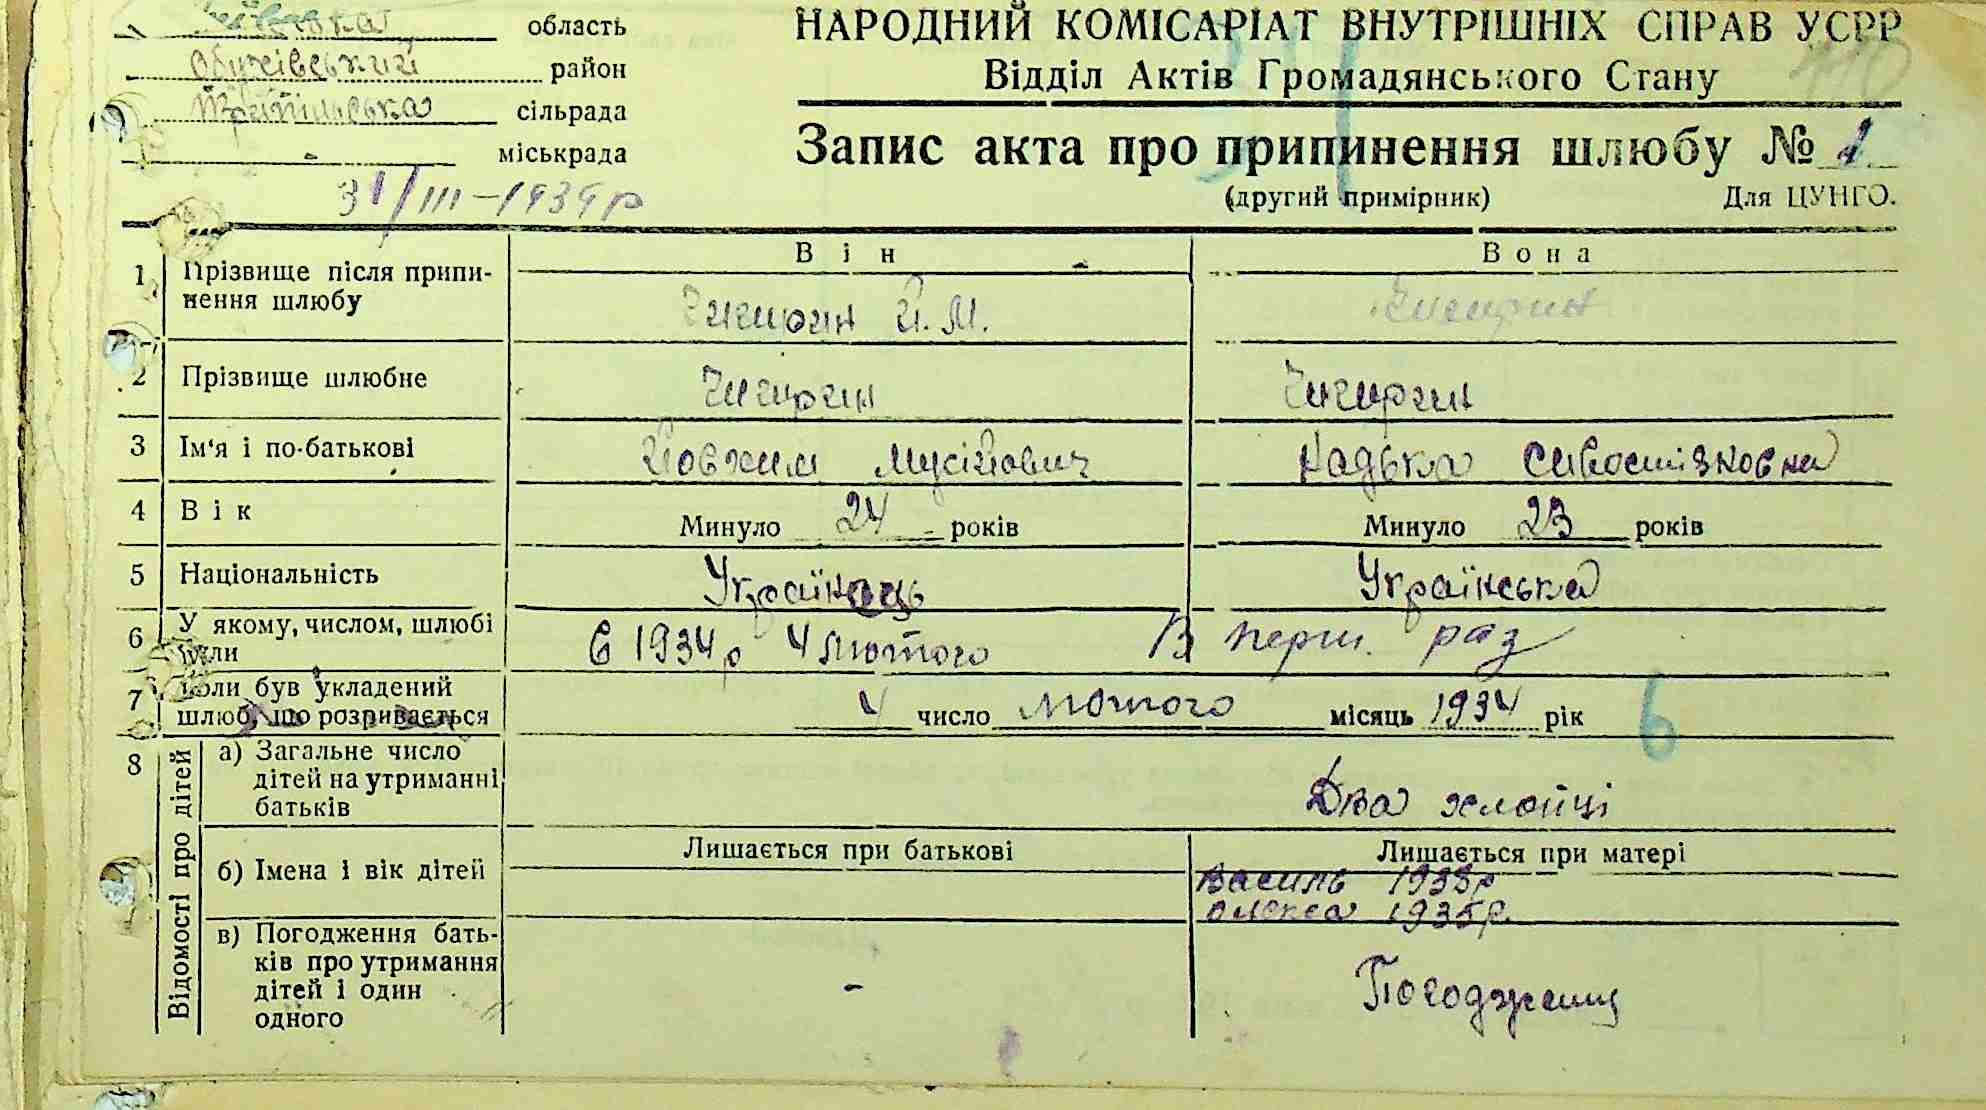 Київська область
Обухівський район
Трипільська сільрада
- міськрада
НАРОДНИЙ КОМІСАРІАТ ВНУТРІШНІХ СПРАВ УСРР
Відділ Актів Громадянського Стану
110
Запис акта про припинення шлюбу № 1
(другий примірник) Для ЦУНГО.
Він Вона
1 Прізвище після припи-
нення шлюбу
Чигирин Й. М. Чигирин
2 Прізвище шлюбне Чигирин Чигирин
3 Ім'я і по-батькові Йовхим Мусійович Надька
4 Вік Минуло 24 років Минуло 23 років
5 Національність Українець Українська
6 У якому, числом, шлюбі
були
в 1934 р 4 лютого В перш. раз
7 Коли був укладений
шлюб, що розривається
4 число лютого місяць 1934 рік
6
8 Відомості про дітей
а) Загальне число
дітей на утриманні
батьків
Два хлопці
Лишається при батькові Лишається при матері
б) Імена і вік дітей
Василь 1933р
Олекса 1935р.
в) Погодження бать-
ків про утримання
дітей і один
одного
-